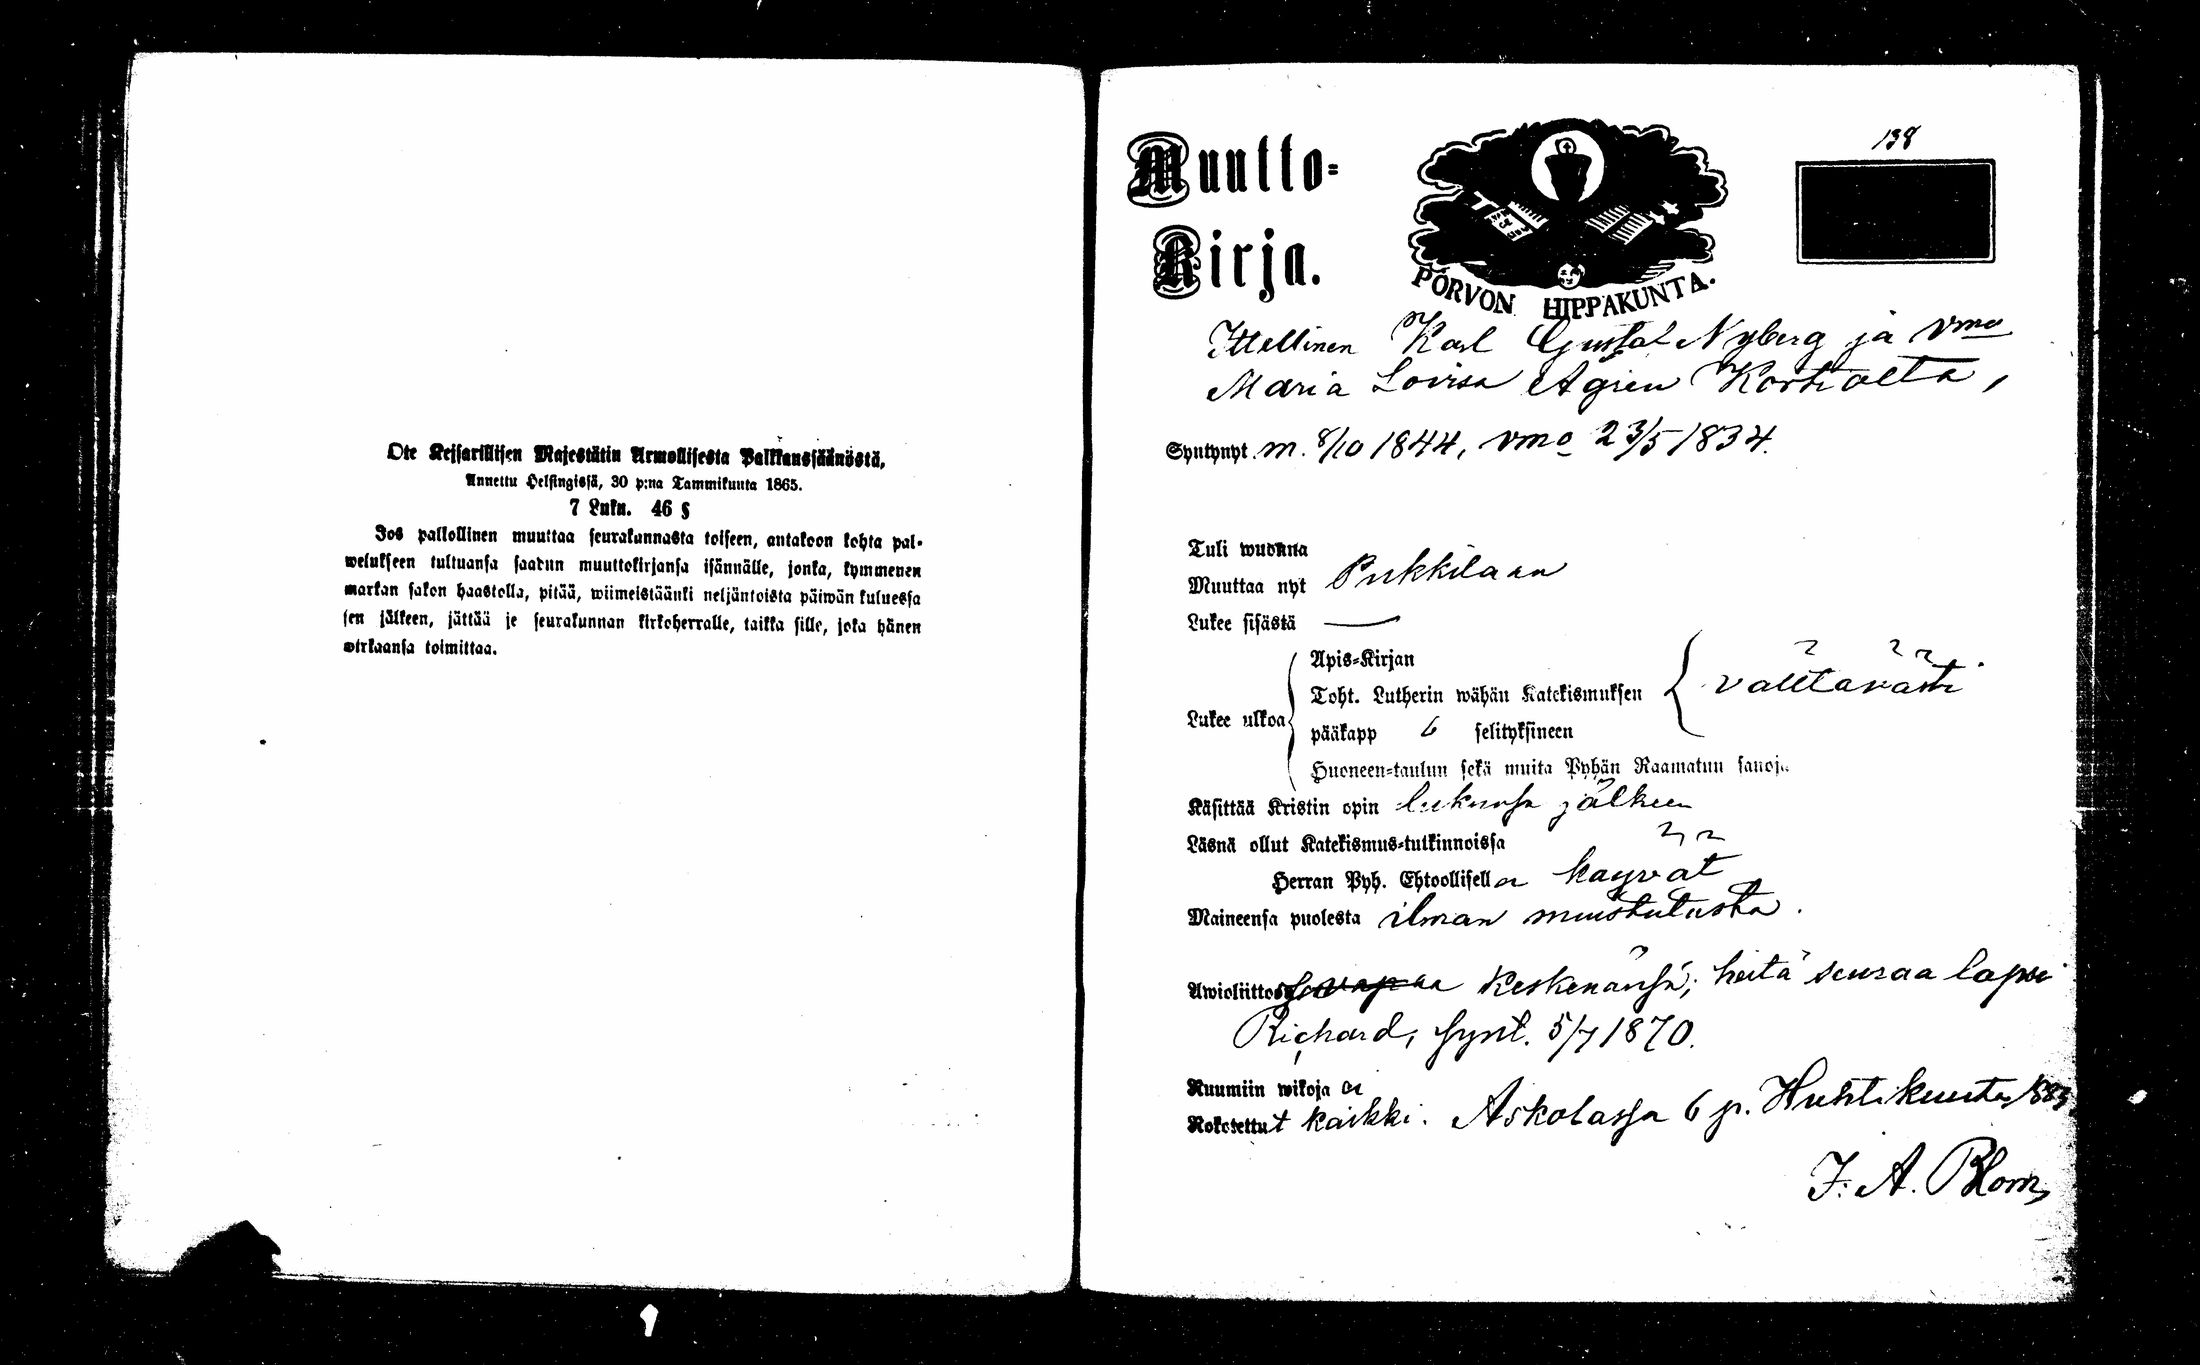 Ote Keisarillisen Majestätin Armollisesta Palkkaussäänöstä,
Annettu Helsingissä, 30 p:na Tammikuuta 1865.
7 Luku. 46 §
Jos palkollinen muuttaa seurakunnasta toiseen, antakoon kohta pal-
welukseen tultuansa saadun muuttokirjansa isännälle, jonka, kymmenen
markan sakon haastolla, pitää, wiimeistäänki neljäntoista päiwän kuluessa
sen jälkeen, jättää se seurakunnan kirkoherralle, taikka sille, joka hänen
wirkaansa toimittaa.
138
Muutto-
Kirja.
PORVON HIPPAKUNTA.
Ittellinen Karl Gustaf Nyberg ja vmo
Maria Lovisa Korttialta,
Syntynyt m. 8/10 1844, vmo 23/5 1834.
Tuli wuonna
Muuttaa nyt Pukkilaan
Lukee sisästä —
Apis-Kirjan
Toht. Lutherin wähän Katekismuksen välttävästi
Lukee ulkoa
pääkapp 6 selityksineen
Huoneen-taulun sekä muita Pyhän Raamatun sanoja
Käsittää Kristin opin lukunsa jälkeen
Läsnä ollut Katekismus-tutkinnoissa
Herran Pyh. Ehtoollisella käyvät
Maineensa puolesta ilman muistutusta.
Awioliittoon vapaa keskenänsä; heitä seuraa lapsi
Richard, synt. 5/7 1870.
Ruumiin wikoja ei
Rokotettut kaikki. Askolassa 6 p. Huhtikuuta 1883
J. A. Blom